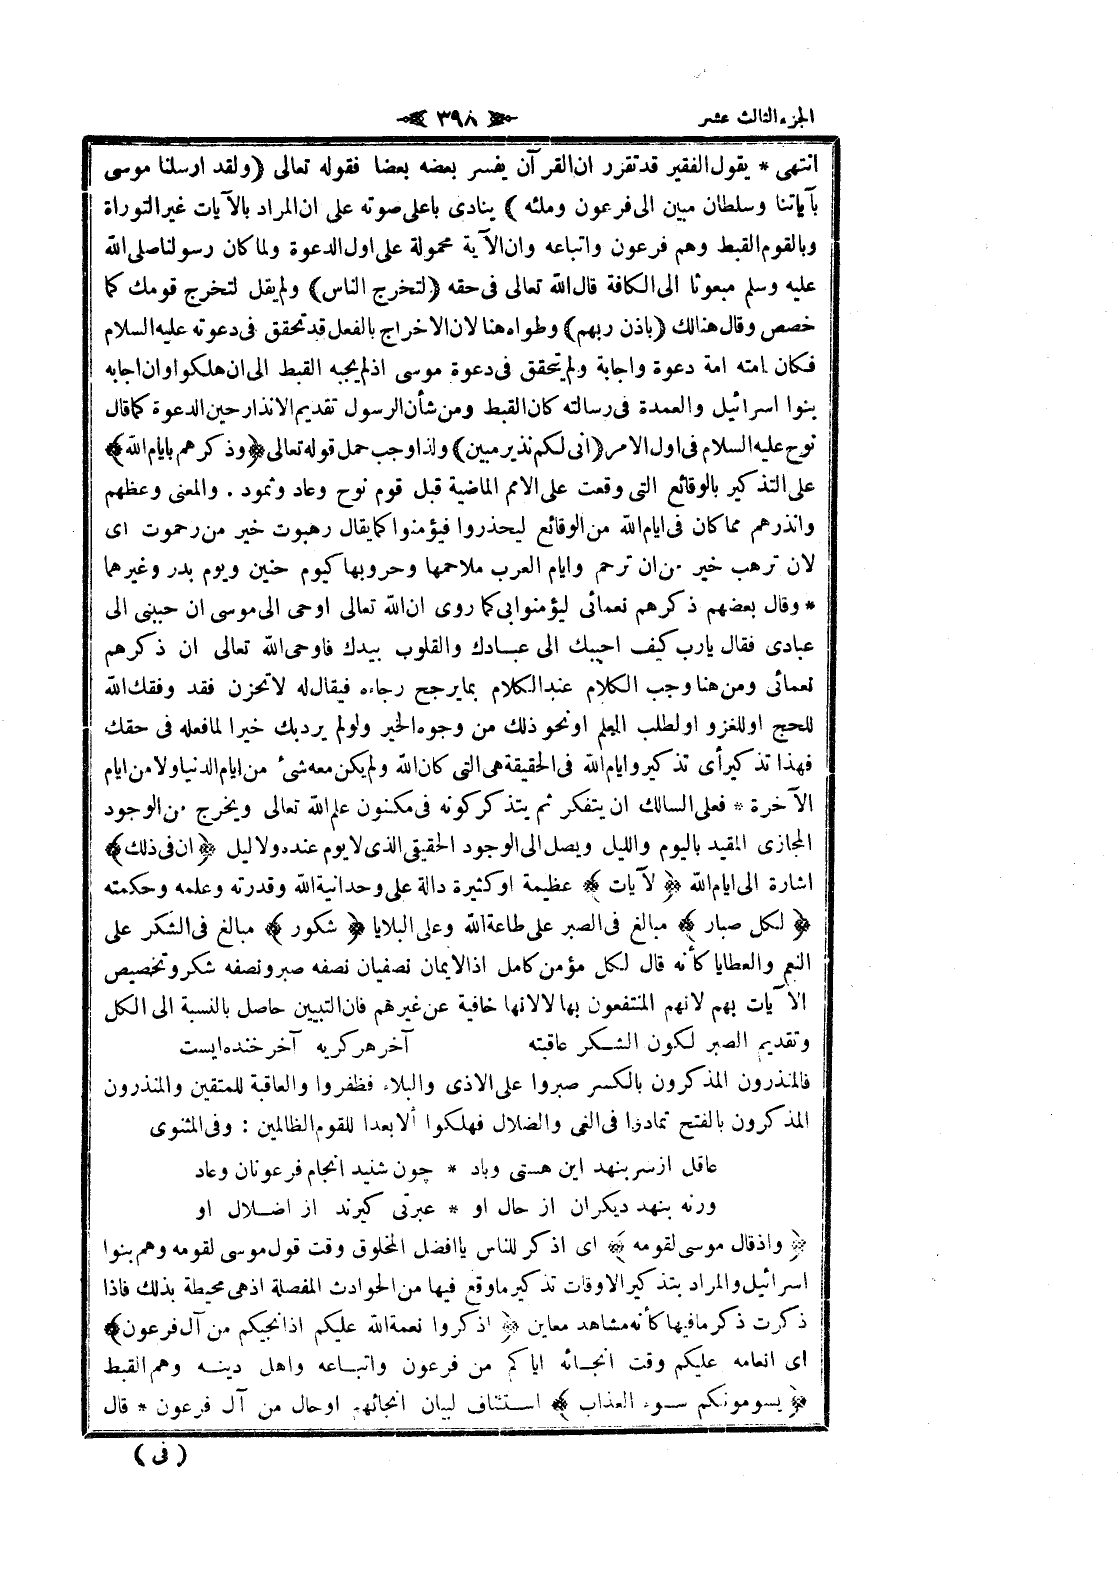 الجزء الثالث عشر
٣٩٨
انتهى * يقول الفقير قد تقرر ان القرآن يفسر بعضه بعضا فقوله تعالى (ولقد ارسلنا موسى
بآياتنا وسلطان مبين الى فرعون وملئه) ينادى باعلى صوته على ان المراد بالآيات غير التوراة
وبالقوم القبط وهم فرعون واتباعه وان الآية محمولة على اول الدعوة ولما كان رسولنا صلى الله
عليه وسلم مبعوثا الى الكافة قال الله تعالى فى حقه (لتخرج الناس) ولم يقل لتخرج قومك كما
خصص وقال هنالك (باذن ربهم) وطواه هنا لان الاخراج بالفعل قد تحقق فى دعوته عليه السلام
فكان امته امة دعوة واجابة ولم يتحقق فى دعوة موسى اذ لم يجبه القبط الى ان هلكوا وان اجابه
بنوا اسرائيل والعمدة فى رسالته كان القبط ومن شأن الرسول تقديم الانذار حين الدعوة كما قال
نوح عليه السلام فى اول الامر (انى لكم نذير مبين) ولذا وجب حمل قوله تعالى ﴿وذكرهم بايام الله﴾
على التذكير بالوقائع التى وقعت على الامم الماضية قبل قوم نوح وعاد وثمود . والمعنى وعظهم
وانذرهم مما كان فى ايام الله من الوقائع ليحذروا فيؤمنوا كما يقال رهبوت خير من رحموت اى
لان ترهب خير من ان ترحم وايام العرب ملاحمها وحروبها كيوم حنين ويوم بدر وغيرهما
* وقال بعضهم ذكرهم نعمائى ليؤمنوا بى كما روى ان الله تعالى اوحى الى موسى ان حببنى الى
عبادى فقال يارب كيف احببك الى عبادك والقلوب بيدك فاوحى الله تعالى ان ذكرهم
نعمائى ومن هنا وجب الكلام عند الكلام بما يرجح رجاءه فيقال له لا تحزن فقد وفقك الله
للحج او للغزو او لطلب العلم او نحو ذلك من وجوه الخير ولو لم يرد بك خيرا لما فعله فى حقك
فهذا تذكير أى تذكير وايام الله فى الحقيقة هى التى كان الله ولم يكن معه شئ من ايام الدنيا ولا من ايام
الآخرة * فعلى السالك ان يتفكر ثم يتذكر كونه فى مكنون علم الله تعالى ويخرج من الوجود
المجازى المقيد باليوم والليل ويصل الى الوجود الحقيقى الذى لا يوم عنده ولا ليل ﴿ان فى ذلك﴾
اشارة الى ايام الله ﴿لآيات﴾ عظيمة او كثيرة دالة على وحدانية الله وقدرته وعلمه وحكمته
﴿لكل صبار﴾ مبالغ فى الصبر على طاعة الله وعلى البلايا ﴿شكور﴾ مبالغ فى الشكر على
النعم والعطايا كأنه قال لكل مؤمن كامل اذ الايمان نصفيان نصفه صبر ونصفه شكر وتخصيص
الآيات بهم لانهم المنتفعون بها لا لانها خافية عن غيرهم فان التبيين حاصل بالنسبة الى الكل
وتقديم الصبر لكون الشكر عاقبته آخر هر كريه آخر خنده ايست
فالمنذرون المذكرون بالكسر صبروا على الاذى والبلاء فظفروا والعاقبة للمتقين والمنذرون
المذكرون بالفتح تمادوا فى الغى والضلال فهلكوا ألا بعدا للقوم الظالمين : وفى المثنوى
عاقل از سر بنهد اين هستى وباد * چون شنيد انجام فرعونان وعاد
ورنه بنهد ديكران از حال او * عبرتى كيرند از اضلال او
﴿واذ قال موسى لقومه﴾ اى اذكر للناس يا افضل المخلوق وقت قول موسى لقومه وهم بنوا
اسرائيل والمراد بتذكير الاوقات تذكير ما وقع فيها من الحوادث المفصلة اذ هى محيطة بذلك فاذا
ذكرت ذكر ما فيها كأنه مشاهد معاين ﴿اذكروا نعمة الله عليكم اذ انجيكم من آل فرعون﴾
اى انعامه عليكم وقت انجائه اياكم من فرعون واتباعه واهل دينه وهم القبط
﴿يسومونكم سوء العذاب﴾ استئناف لبيان انجائهم او حال من آل فرعون * قال
(فى)